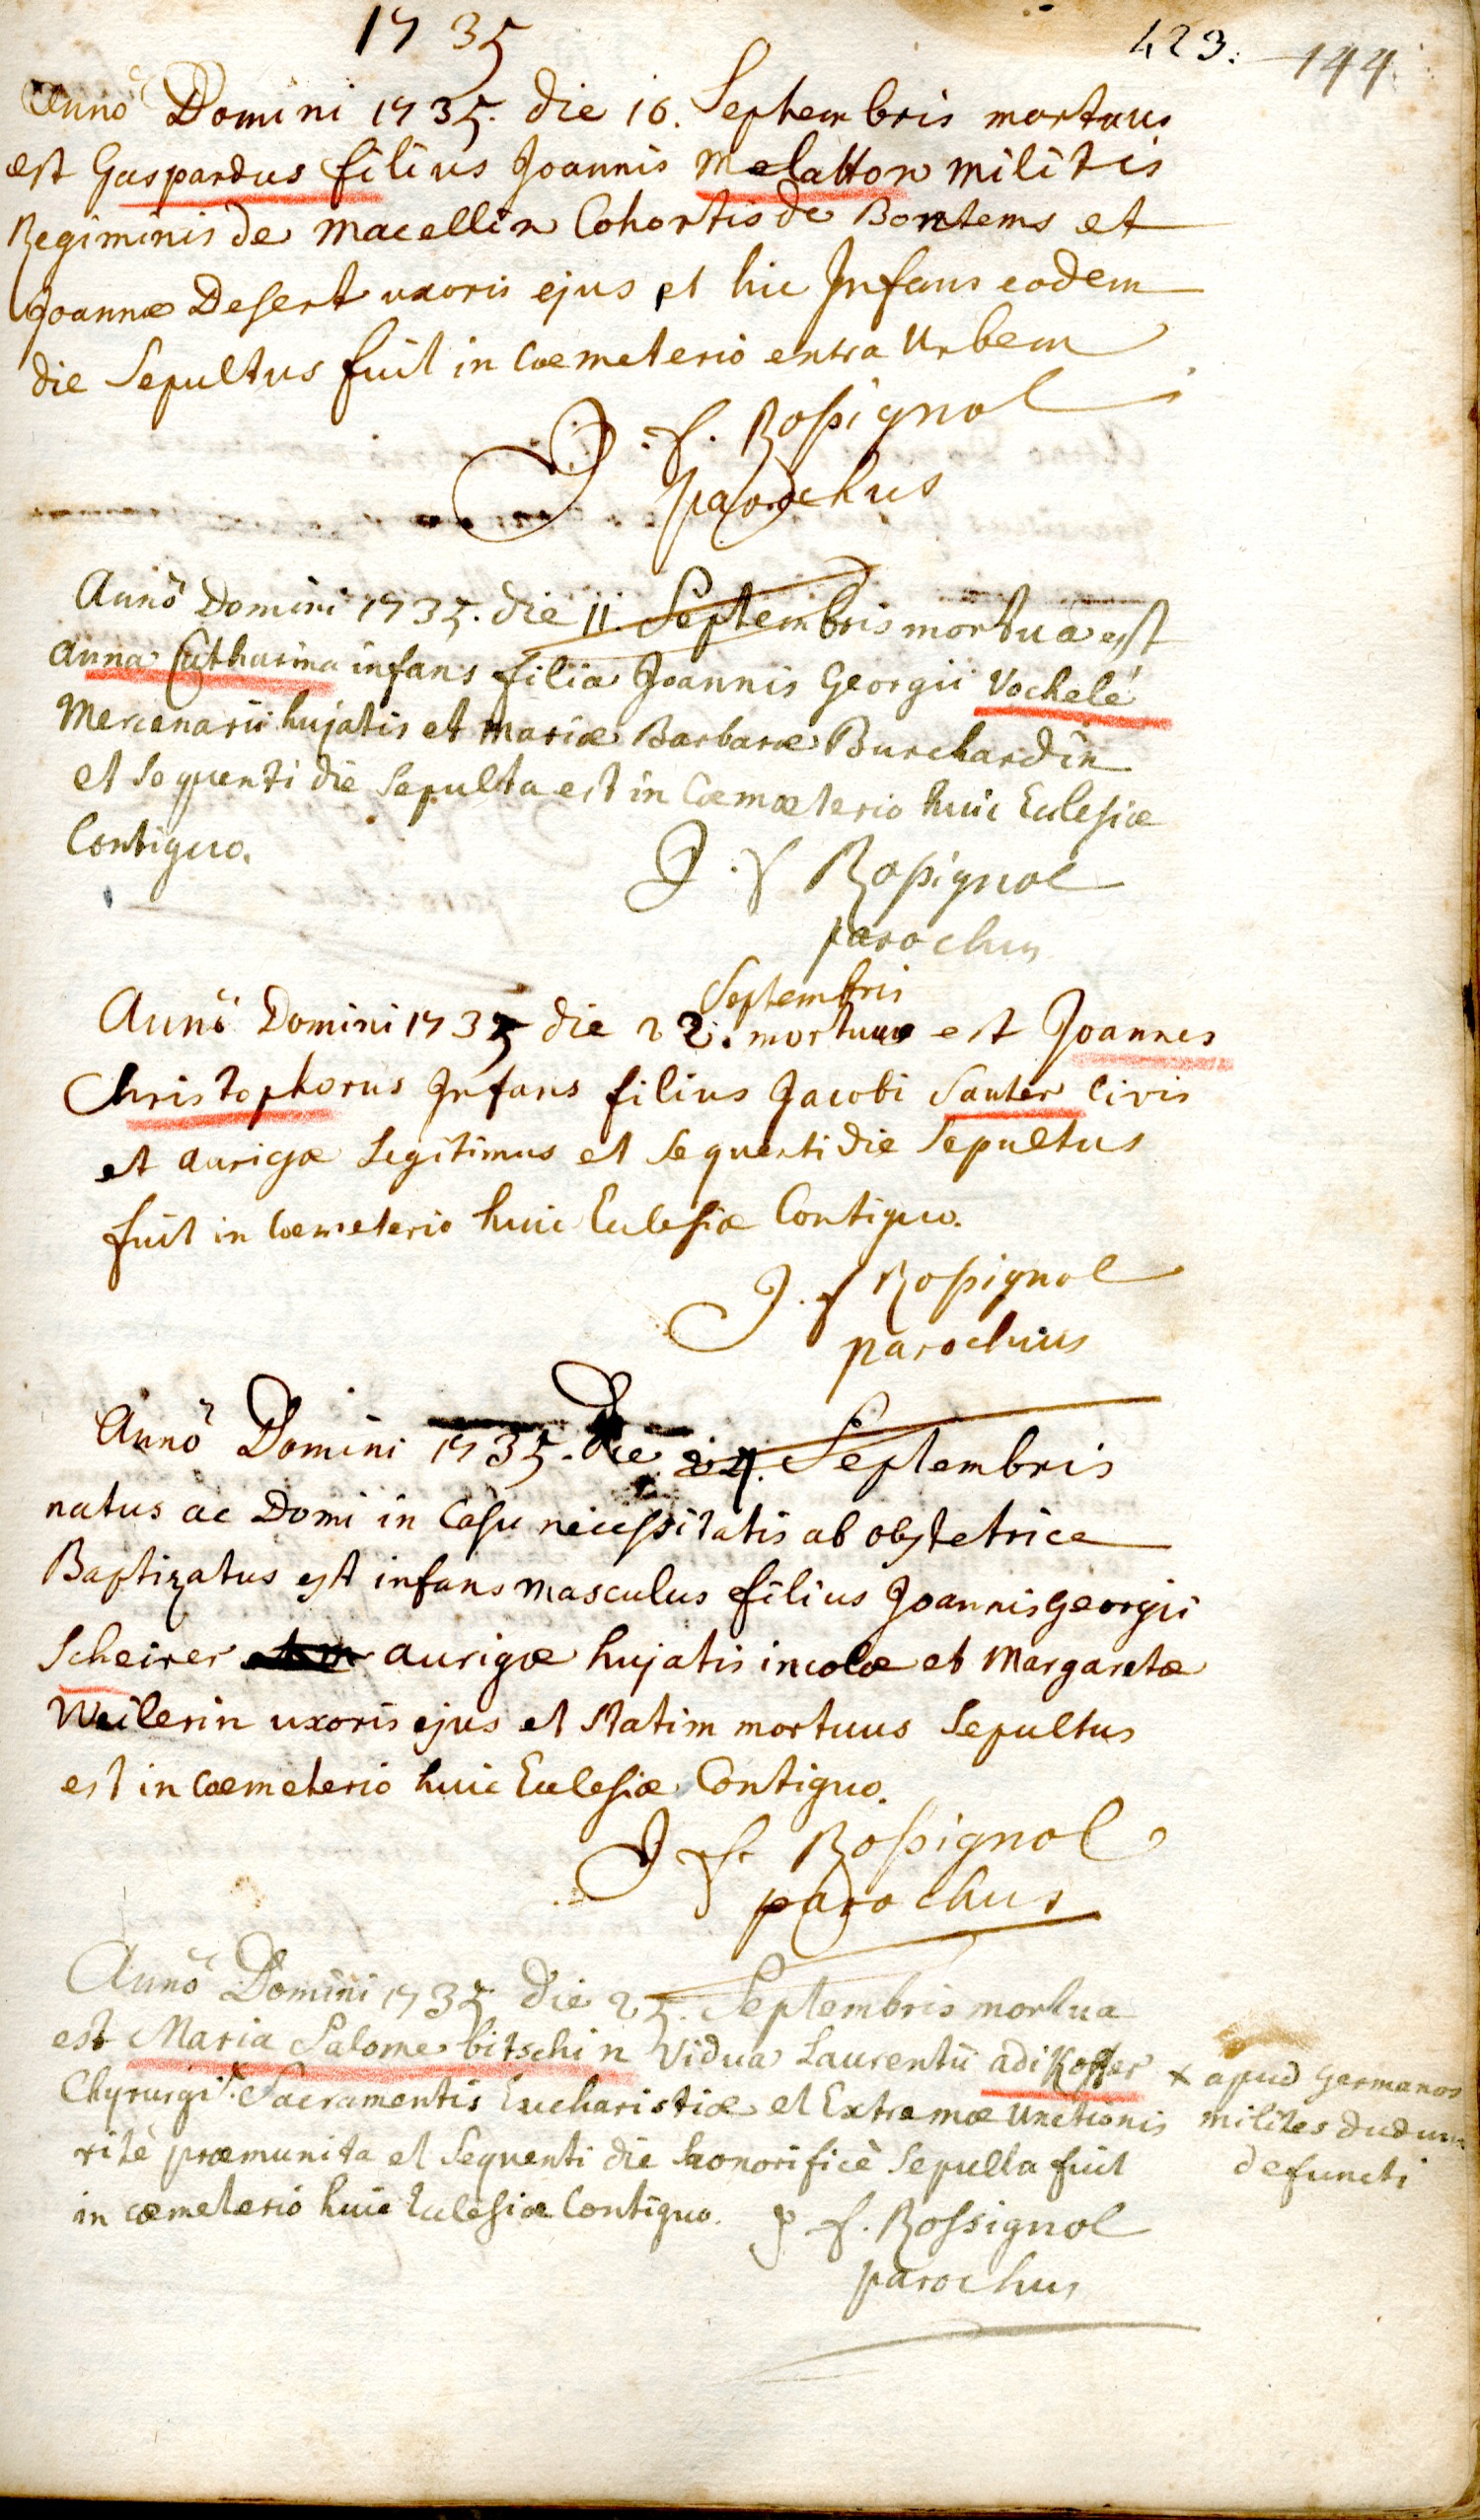 1735
423.
144.
Anno Domini 1735. die 10. Septembris mortuus
est Gaspardus filius Joannis Melatton militis
Regiminis de Macellin Cohortis de Bontems et
Joannæ Desert uxoris ejus et hic Infans eodem
die Sepultus fuit in Cœmeterio extra Urbem
J. f. Rossignol
parochus
Anno Domini 1735. die 11. Septembris mortua est
Anna Catharina infans filia Joannis Georgii Vochelé
Mercenarii hujatis et Mariæ Barbaræ Burchardin
et Sequenti die Sepulta est in Cœmæterio huic Eclesiæ
Contiguo.
J. f Rossignol
parochus
Septembris
Anno Domini 1735 die 22. mortuus est Joannes
Christophorus Infans filius Jacobi Sauter Civis
et aurigæ Legitimus et Sequenti die Sepultus
fuit in Cœmeterio huic Eclesiæ Contiguo.
J. f Rossignol
parochus
Anno Domini 1735. die 24. Septembris
natus ac Domi in Casu necessitatis ab obstetrice
Baptizatus est infans masculus filius Joannis Georgii
Scheirer aurigæ hujatis incolæ et Margaretæ
Weilerin uxoris ejus et Statim mortuus Sepultus
est in Cœmeterio huic Eclesiæ Contiguo.
J f. Rossignol
parochus
Anno Domini 1735 die 25. Septembris mortua
est Maria Salome bitschin Vidua Laurentii adiKoffer
Chyrurgi x Sacramentis Eucharistiæ et Extremæ Unctionis
ritè præmunita et Sequenti die honorificè Sepulta fuit
in cœmeterio huic Eclesiæ Contiguo.
x apud Germanos
milites dudum
defuncti
J f. Rossignol
parochus